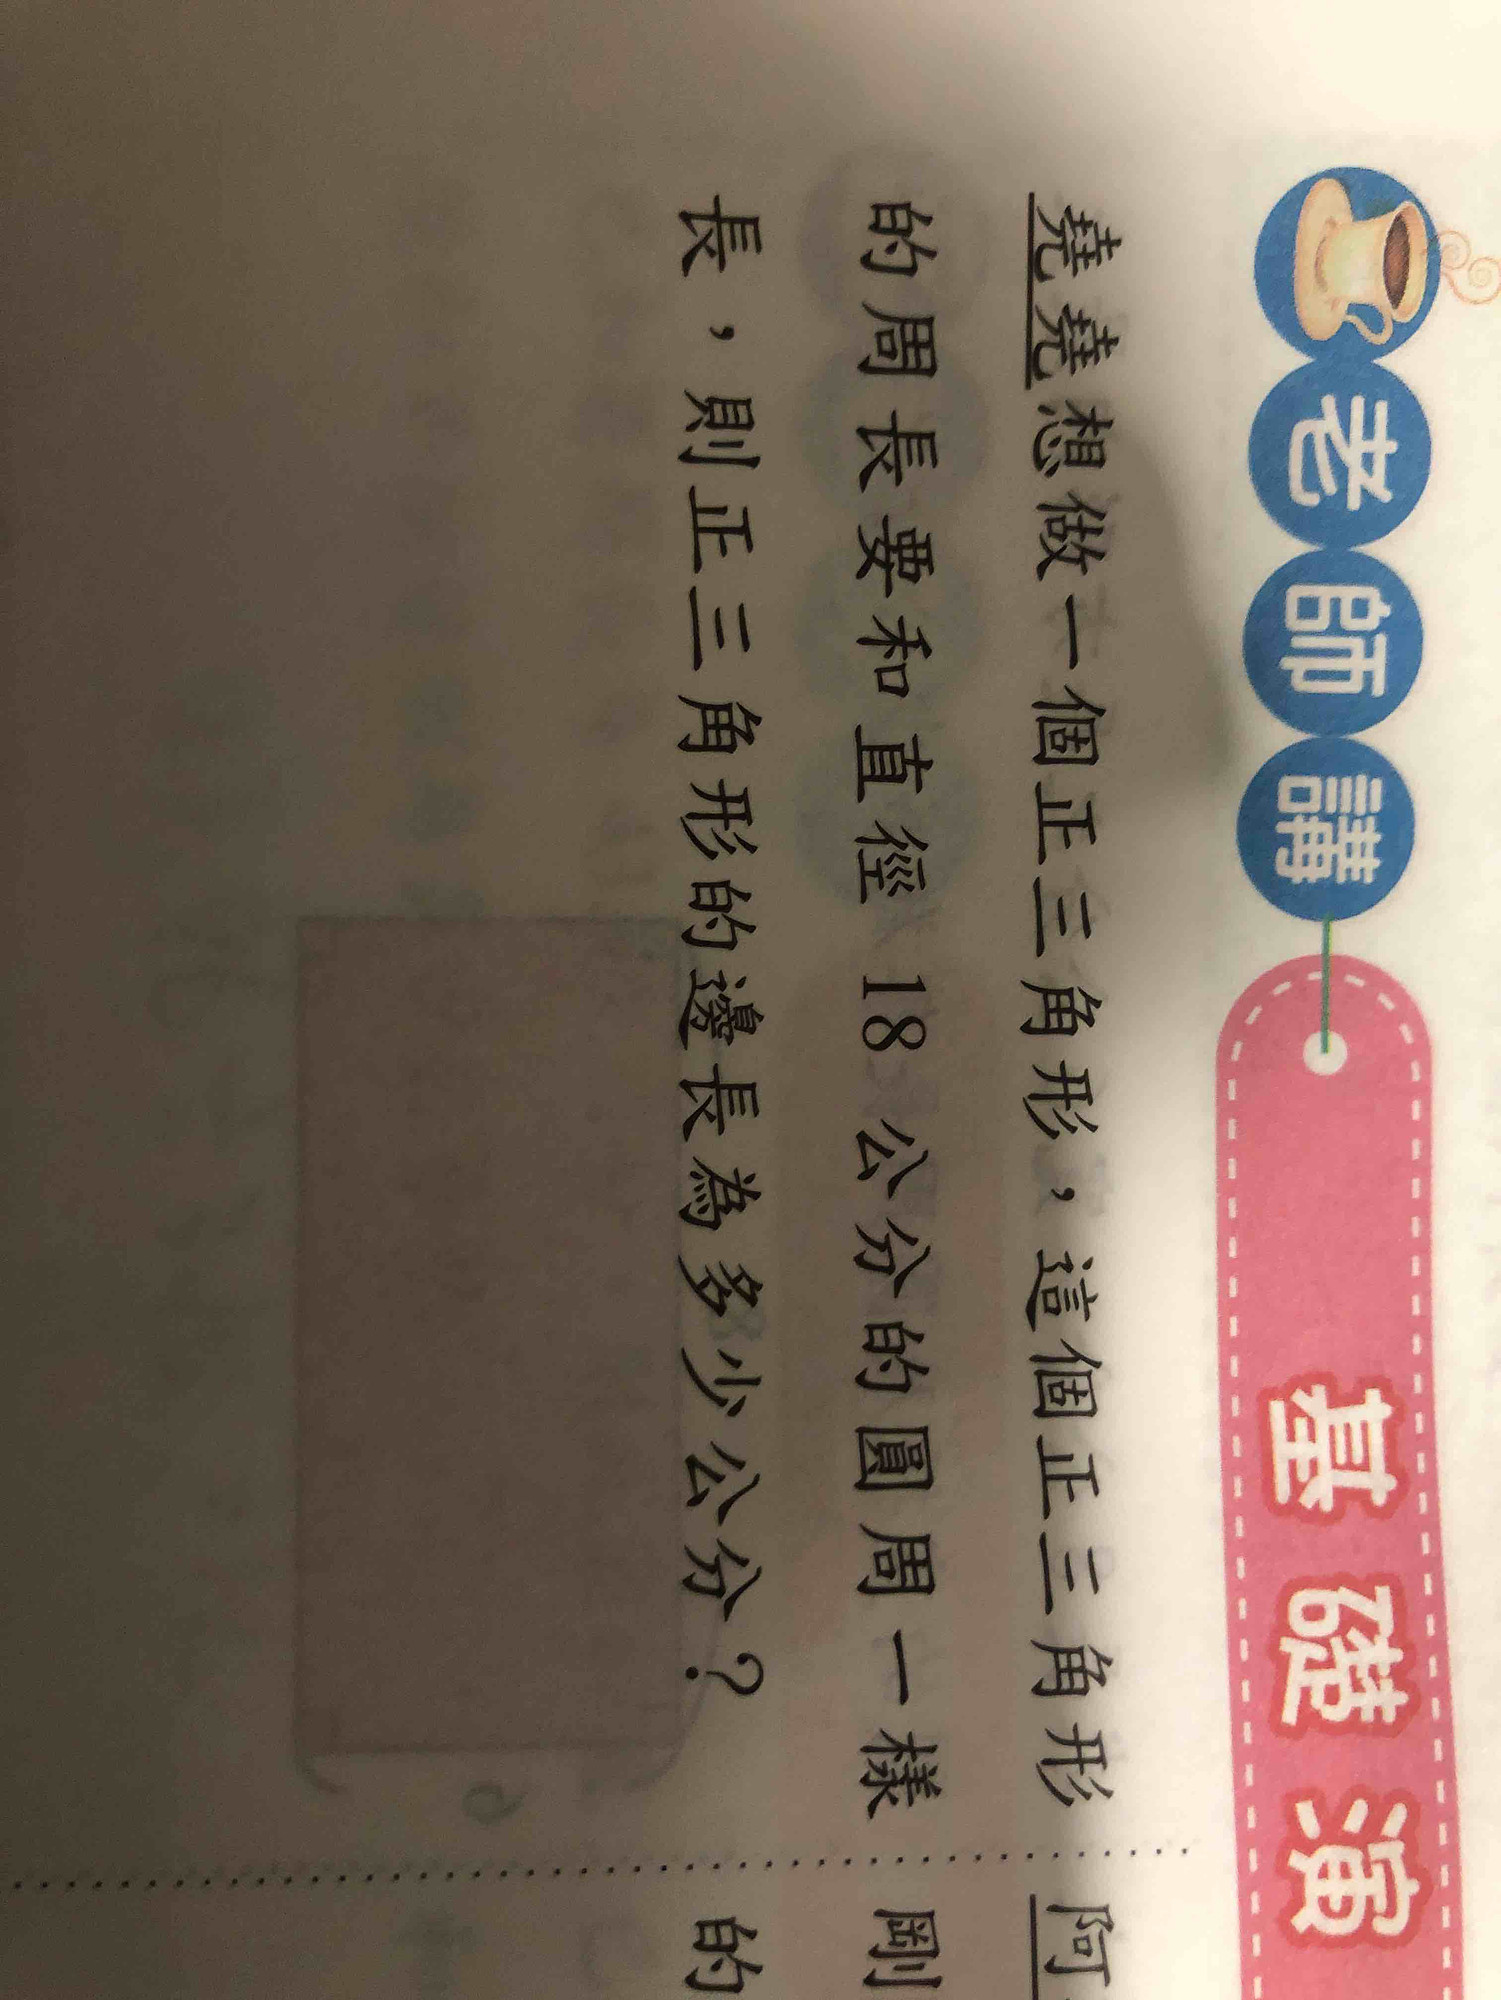 老師講
基礎演
堯堯想做一個正三角形，這個正三角形
的周長要和直徑 18 公分的圓周一樣
長，則正三角形的邊長為多少公分？
阿
剛
的